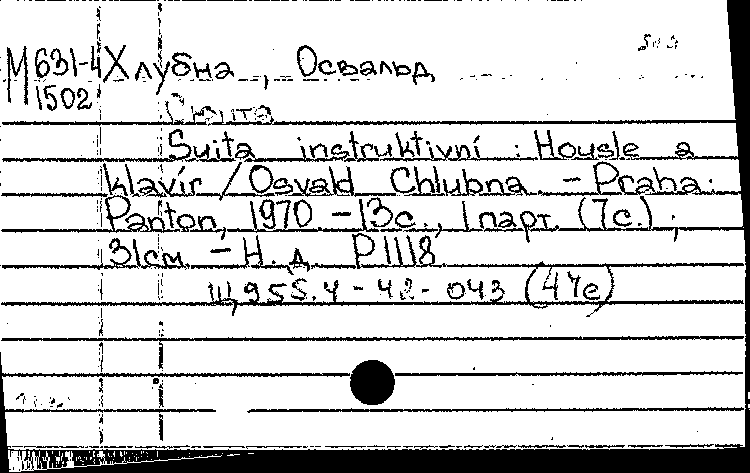 М631-4 Хлубна, Освальд
1502
Сюита
Suita instruktivní : Housle a
klavír / Osvald Chlubna. – Praha:
Panton, 1970. – 13с., 1парт. (7с.) ;
31см. – Н. д. P1118
Щ955.4 - 42 - 043 (4Че)